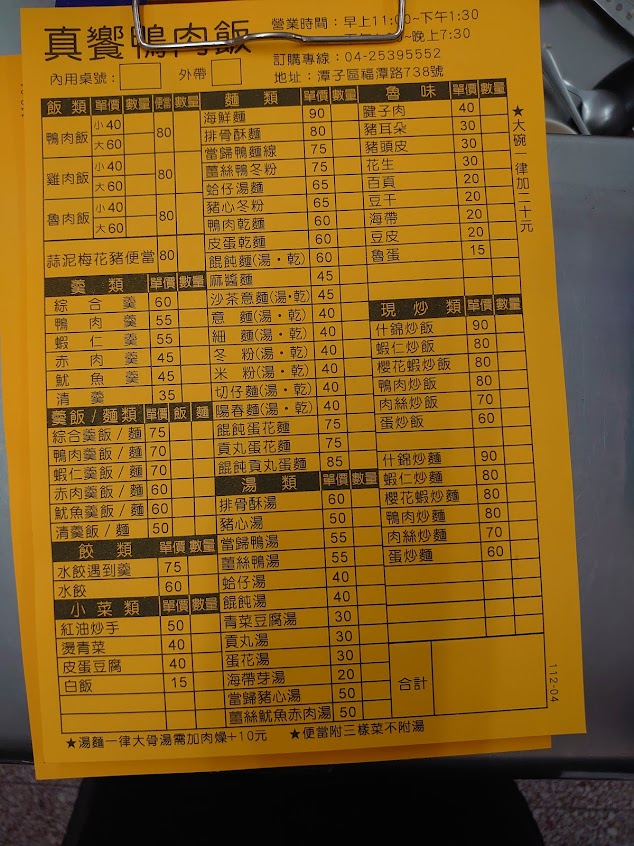 真饗鴨肉飯
營業時間：早上11:00~下午1:30
~晚上7:30
訂購專線：04-25395552
地址：潭子區福潭路738號
內用桌號： 外帶
飯類 單價 數量 便當 數量
鴨肉飯 小40 大60 80
雞肉飯 小40 大60 80
魯肉飯 小40 大60 80
蒜泥梅花豬便當 80
羹類 單價 數量
綜合羹 60
鴨肉羹 55
蝦仁羹 55
赤肉羹 45
魷魚羹 45
清羹 35
羹飯/麵類 單價 飯 麵
綜合羹飯/麵 75
鴨肉羹飯/麵 70
蝦仁羹飯/麵 70
赤肉羹飯/麵 60
魷魚羹飯/麵 60
清羹飯/麵 50
餃類 單價 數量
水餃遇到羹 75
水餃 60
小菜類 單價 數量
紅油炒手 50
燙青菜 40
皮蛋豆腐 40
白飯 15
麵類 單價 數量
海鮮麵 90
排骨酥麵 80
當歸鴨麵線 75
薑絲鴨冬粉 75
蛤仔湯麵 65
豬心冬粉 65
鴨肉乾麵 60
皮蛋乾麵 60
餛飩麵(湯・乾) 60
麻醬麵 45
沙茶意麵(湯・乾) 45
意麵(湯・乾) 40
細麵(湯・乾) 40
冬粉(湯・乾) 40
米粉(湯・乾) 40
切仔麵(湯・乾) 40
陽春麵(湯・乾) 40
餛飩蛋花麵 75
貢丸蛋花麵 75
餛飩貢丸蛋麵 85
湯類 單價 數量
排骨酥湯 60
豬心湯 50
當歸鴨湯 55
薑絲鴨湯 55
蛤仔湯 40
餛飩湯 40
青菜豆腐湯 30
貢丸湯 30
蛋花湯 30
海帶芽湯 20
當歸豬心湯 50
薑絲魷魚赤肉湯 50
魯味 單價 數量
腱子肉 40
豬耳朵 30
豬頭皮 30
花生 30
百頁 20
豆干 20
海帶 20
豆皮 20
魯蛋 15
現炒類 單價 數量
什錦炒飯 90
蝦仁炒飯 80
櫻花蝦炒飯 80
鴨肉炒飯 80
肉絲炒飯 70
蛋炒飯 60
什錦炒麵 90
蝦仁炒麵 80
櫻花蝦炒麵 80
鴨肉炒麵 80
肉絲炒麵 70
蛋炒麵 60
合計
★大碗一律加二十元
112-04
★湯麵一律大骨湯需加肉燥+10元 ★便當附三樣菜不附湯